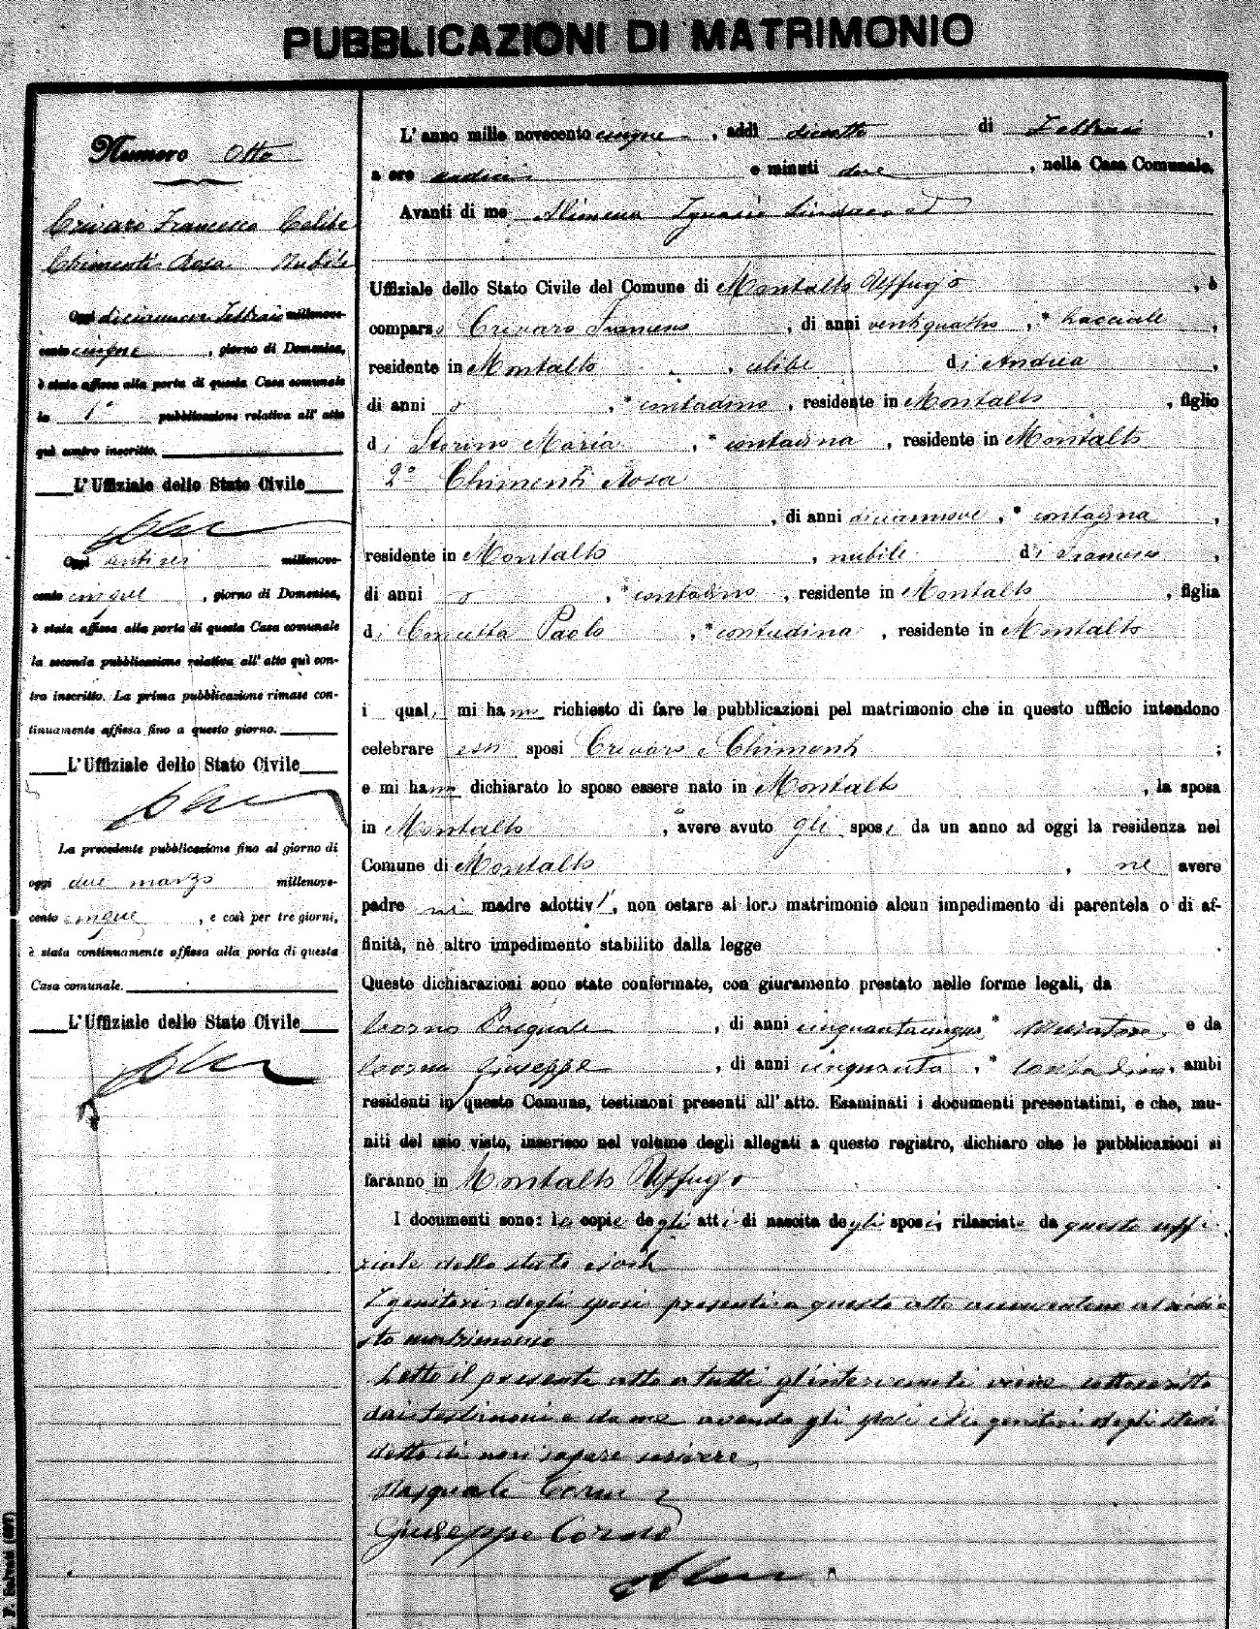 PUBBLICAZIONI DI MATRIMONIO
Numero Otto
Crivaro Francesco Celibe
Chimenti Rosa Nubile
Oggi diciannove Febbraio millenove-
cento cinque, giorno di Domenica,
è stata affissa alla porta di questa Casa comunale
la 1ª pubblicazione relativa all' atto
quì contro inscritto.
L'Uffiziale dello Stato Civile
Oggi ventisei millenove-
cento cinque, giorno di Domenica,
è stata affissa alla porta di questa Casa comunale
la seconda pubblicazione relativa all' atto quì con-
tro inscritto. La prima pubblicazione rimase con-
tinuamente affissa fino a questo giorno.
L'Uffiziale dello Stato Civile
La precedente pubblicazione fino al giorno di
oggi due marzo millenove-
cento cinque, e così per tre giorni,
è stata continuamente affissa alla porta di questa
Casa comunale.
L'Uffiziale dello Stato Civile
L' anno mille novecento cinque, addì diciotto di Febbraio,
a ore undici e minuti dieci, nella Casa Comunale.
Avanti di me Alimena Ignazio Sindaco ed
Uffiziale dello Stato Civile del Comune di Montalto Uffugo, è
comparso Crivaro Francesco, di anni ventiquattro, bracciale,
residente in Montalto, celibe di Andrea,
di anni, contadino, residente in Montalto, figlio
di Storino Maria, contadina, residente in Montalto
2º Chimenti Rosa
, di anni diciannove, contadina,
residente in Montalto, nubile di Francesco,
di anni, contadino, residente in Montalto, figlia
di Concetta Paolo, contadina, residente in Montalto
i quali mi hanno richiesto di fare le pubblicazioni pel matrimonio che in questo ufficio intendono
celebrare essi sposi Crivaro e Chimenti;
e mi hanno dichiarato lo sposo essere nato in Montalto, la sposa
in Montalto, avere avuto gli sposi da un anno ad oggi la residenza nel
Comune di Montalto, nè avere
padre nè madre adottivi, non ostare al loro matrimonio alcun impedimento di parentela o di af-
finità, nè altro impedimento stabilito dalla legge
Queste dichiarazioni sono state confermate, con giuramento prestato nelle forme legali, da
Corno Pasquale, di anni cinquantacinque, e da
Corno Giuseppe, di anni cinquanta, contadino, ambi
residenti in questo Comune, testimoni presenti all' atto. Esaminati i documenti presentatimi, e che, mu-
niti del mio visto, inserisco nel volume degli allegati a questo registro, dichiaro che le pubblicazioni si
faranno in Montalto Uffugo
I documenti sono: le copie degli atti di nascita degli sposi, rilasciate da questo uffi-
ziale dello stato civile
I genitori degli sposi presenti a questo atto acconsentono al richie
sto matrimonio
Letto il presente atto a tutti gl'intervenuti viene sottoscritto
dai testimoni e da me avendo gli sposi ed i genitori degli stessi
detto di non sapere scrivere
Pasquale Corno
Giuseppe Corno